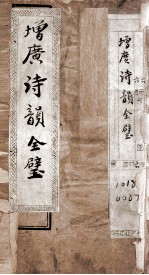 增廣诗韻全璧
增廣诗韻全璧
1018
0007